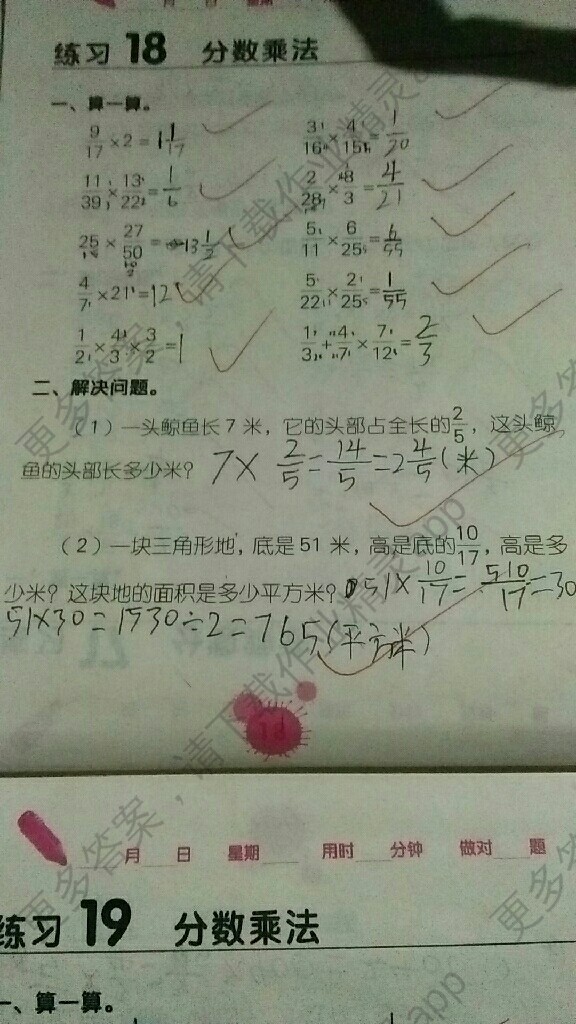 月 日 星期
练习 18 分数乘法
一、算一算。
9/17×2=1 1/17 3/16×4/15=1/20
11/39×13/22=1/6 2/28×8/3=4/21
25/ ×27/50=13 1/2 5/11×6/25=6/55
4/7×21=12 5/22×2/25=1/55
1/2×4/3×3/2=1 1/3+4/7×7/12=2/3
二、解决问题。
（1）一头鲸鱼长7米，它的头部占全长的2/5，这头鲸
鱼的头部长多少米？ 7×2/5=14/5=2 4/5(米)
（2）一块三角形地，底是51米，高是底的10/17，高是多
少米？这块地的面积是多少平方米？ 51×10/17=510/17=30
51×30=1530÷2=765(平方米)
18
月 日 星期 用时 分钟 做对 题
练习 19 分数乘法
一、算一算。
更多答案，请下载作业精灵app